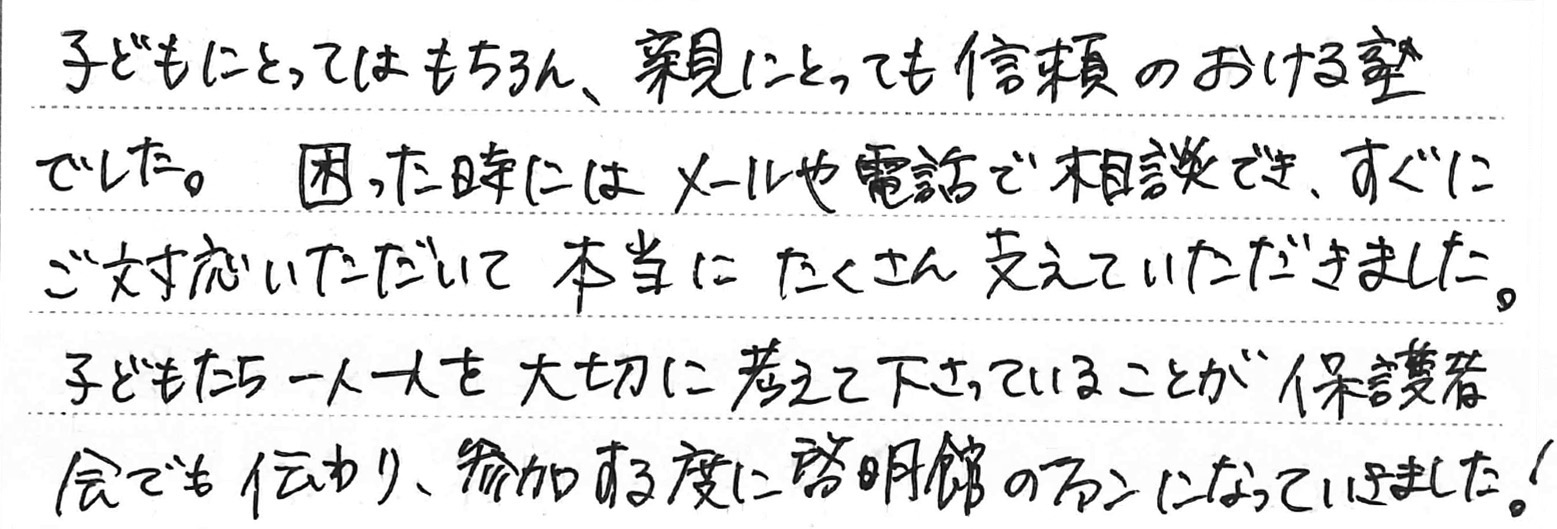 子どもにとってはもちろん、親にとっても信頼のおける塾
でした。 困った時には メールや電話で相談でき、すぐに
ご対応いただいて 本当に たくさん 支えていただきました。
子どもたち一人一人を 大切に 考えて下さっていることが 保護者
会でも 伝わり、参加する度に啓明館のファンになっていきました。!